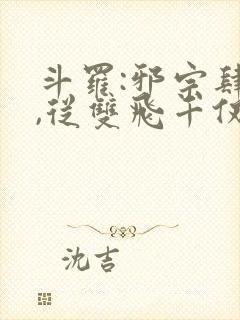 斗羅:邪宗肆
,從雙飛千仭
沈吉